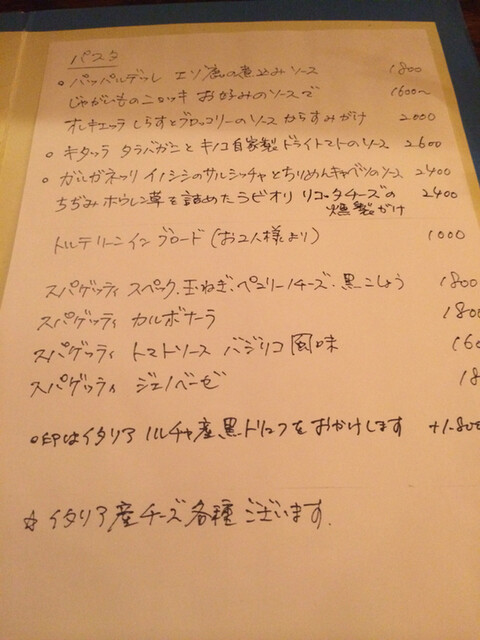 パスタ
○ パッパルデッレ エゾ鹿の煮込みソース 1800
じゃがいものニョッキ お好みのソースで 1600〜
オレキエッテ しらすとブロッコリーのソース からすみがけ 2000
○ キタッラ タラバガニとキノコ自家製ドライトマトのソース 2600
○ ガルガネッリ イノシシのサルシッチャとちりめんキャベツのソース 2400
ちぢみホウレン草を詰めたラビオリ リコッタチーズの 2400
燻製がけ
トルテリーニインブロード (お2人様より) 1000
スパゲッティ スペック、玉ねぎ、ペコリーノチーズ・黒こしょう 1800
スパゲッティ カルボナーラ 180
スパゲッティ トマトソース バジリコ風味 160
スパゲッティ ジェノベーゼ 18
○印はイタリア ノルチャ産黒トリュフをおかけします +1.800
☆ イタリア産チーズ各種ございます.